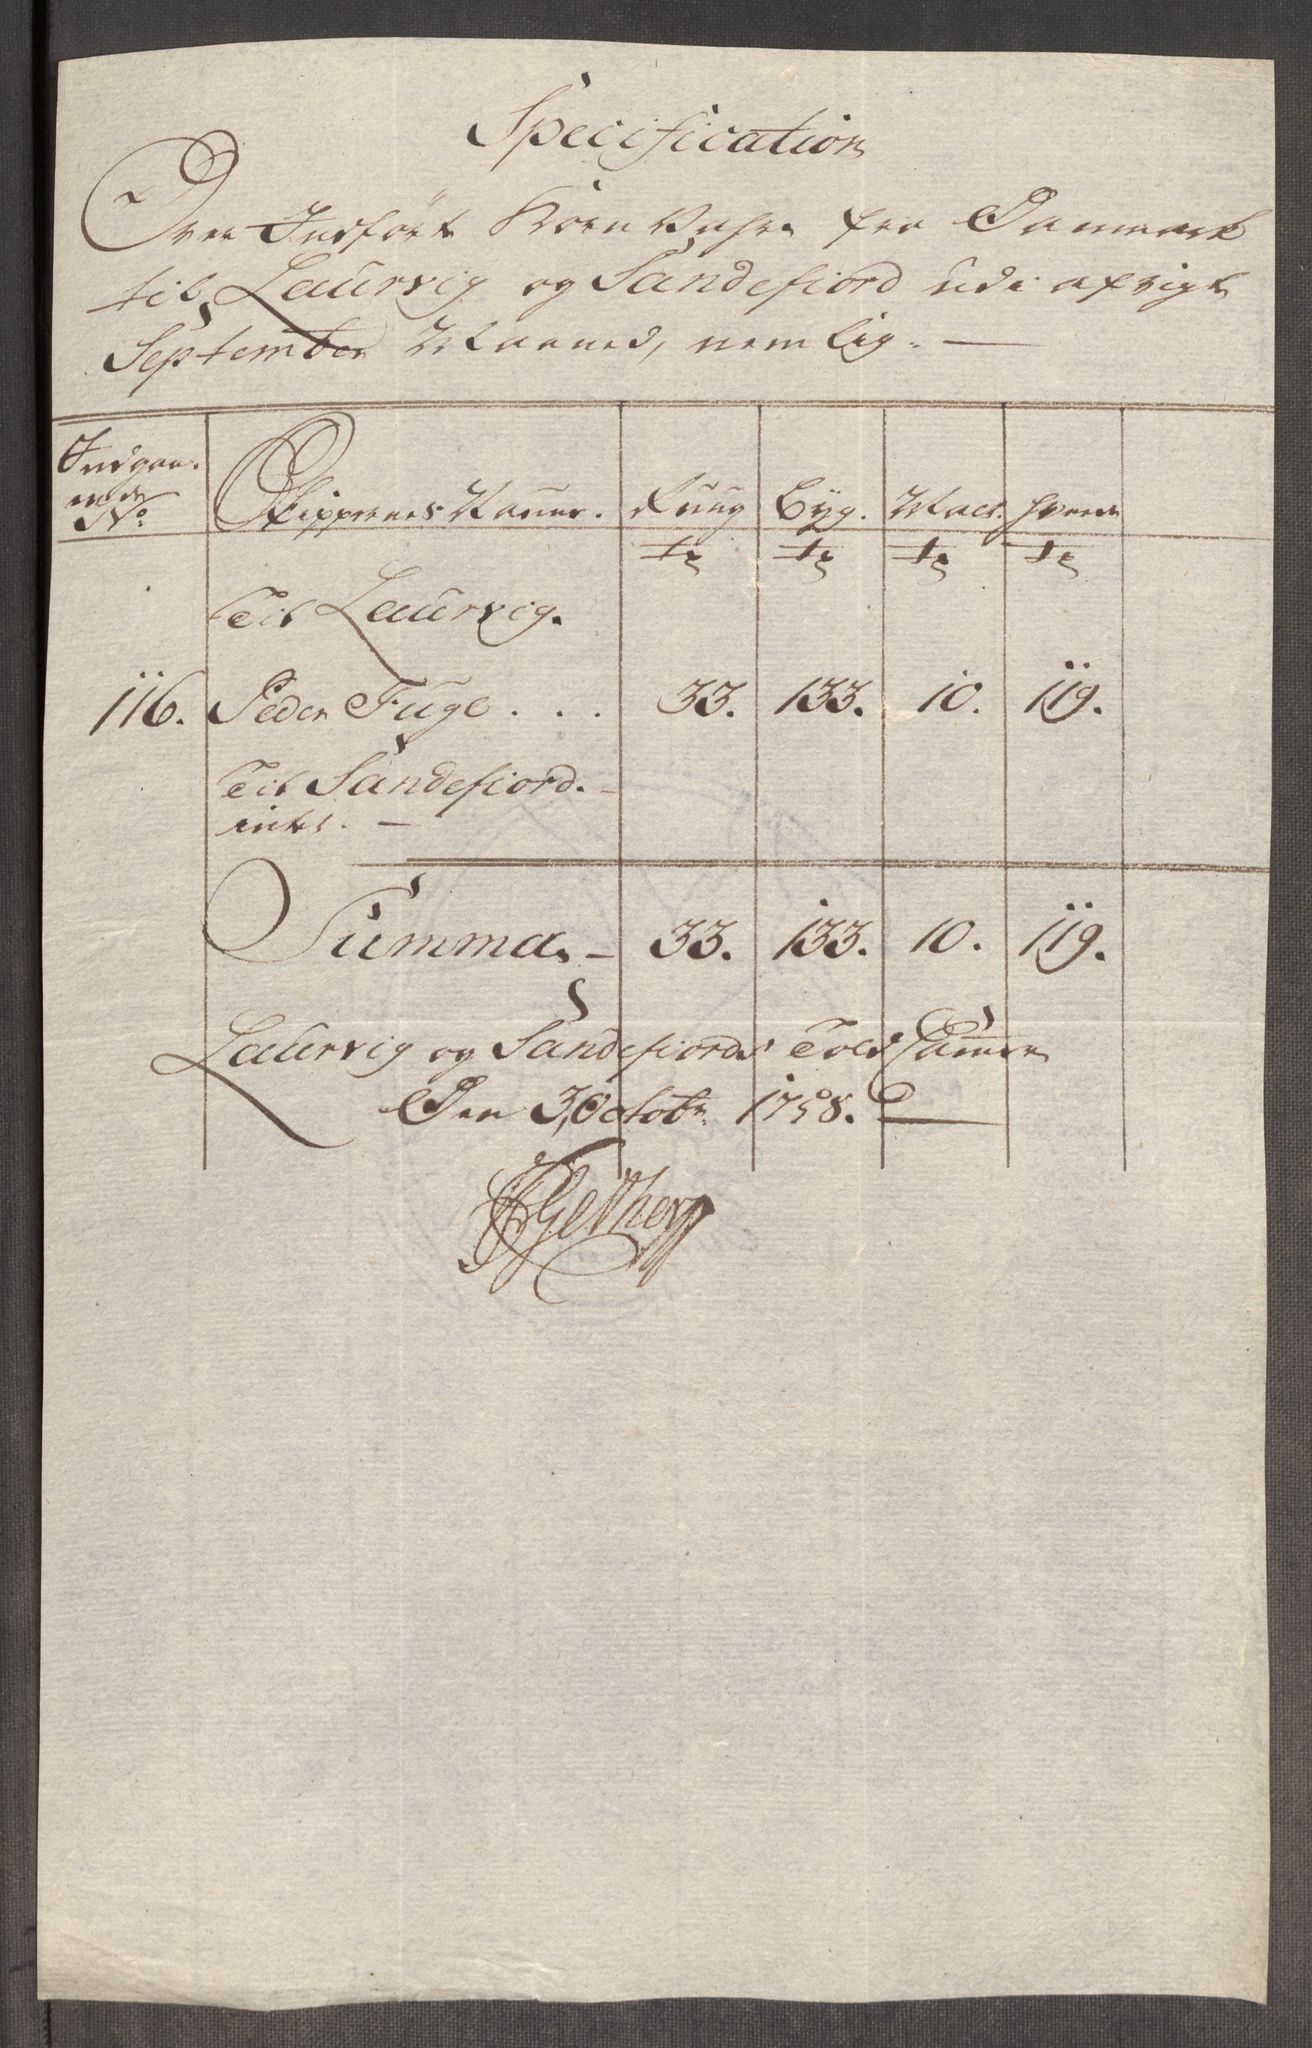 Specification
Over Indført Korn Vahre fra Danmark
til Laurvig og Sandefiord udi afvigt
September Maaned, nemlig. —
Indgaa-
ende
No. Skippernes Nafne. Ruug Byg. Malt. Hvede
tr tr tr tr
Til Laurvig.
116. Peder Fuge . . . 33. 133. 10. 119.
Til Sandefiord. –
intet. —
Summa. – 33. 133. 10. 119.
Laurvig og Sandefiords Told Cammer
Den 3, Octobr. 1758.